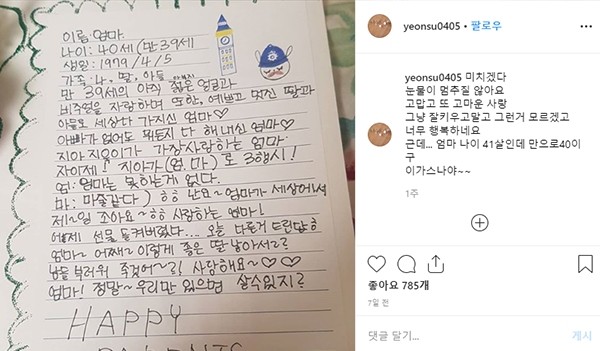 이름: 엄마
나이: 40세 (만 39세
생일: 1979 / 4 / 5
가족: 나, 딸, 아들
만 39세의 아직 젊은 얼굴과
비주얼을 자랑하며 또한, 예쁘고 멋진 딸과
아들로 세상 다 가지신 엄마♡
아빠가 없어도 뭐든지 다 해내신 엄마♡
지아 지욱이가 가장사랑하는 엄마~
자 이제! 지아가 (엄.마)로 3행시!
엄: 엄마는 못하는게 없다.
마: 마술같다) ㅎㅎ 난요~ 엄마가 세상에서
제~일 좋아요~ㅎㅎ 사랑하는 엄마!
어제 선물 들켜버렸다... 오늘 다른거 드린답ㅎ
엄마~ 어째~ 이렇게 좋은 딸 낳아서~?
남들 부러워 죽겠어~?! 사랑해요~♡♡
엄마! 정말~ 우리만 있으면 살수있지?
HAPPY
yeonsu0405 • 팔로우
yeonsu0405 미치겠다
눈물이 멈추질 않아요
고맙고 또 고마운 사랑
그냥 잘키우고말고 그런거 모르겠고
너무 행복하네요
근데... 엄마 나이 41살인데 만으로40이
구
이가스나야~~
1주
좋아요 785개
7일 전
댓글 달기...
게시